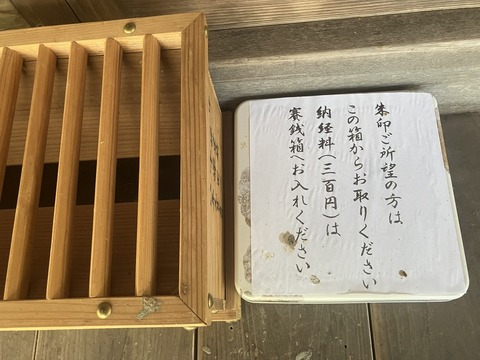 朱印ご所望の方は
この箱からお取りください
納経料(三百円)は
賽銭箱へお入れください